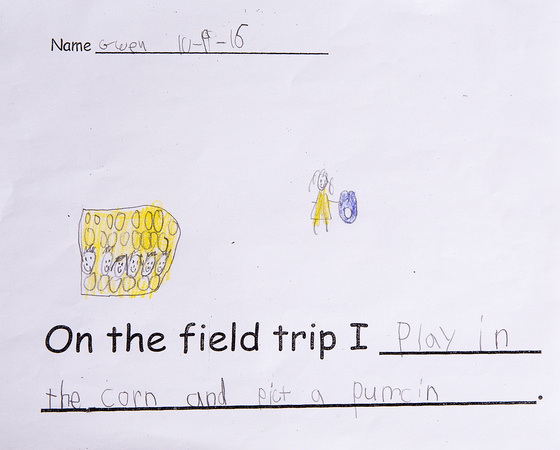 Name Gwen 10-9-15
On the field trip I Play in
the corn and pict a pumcin.